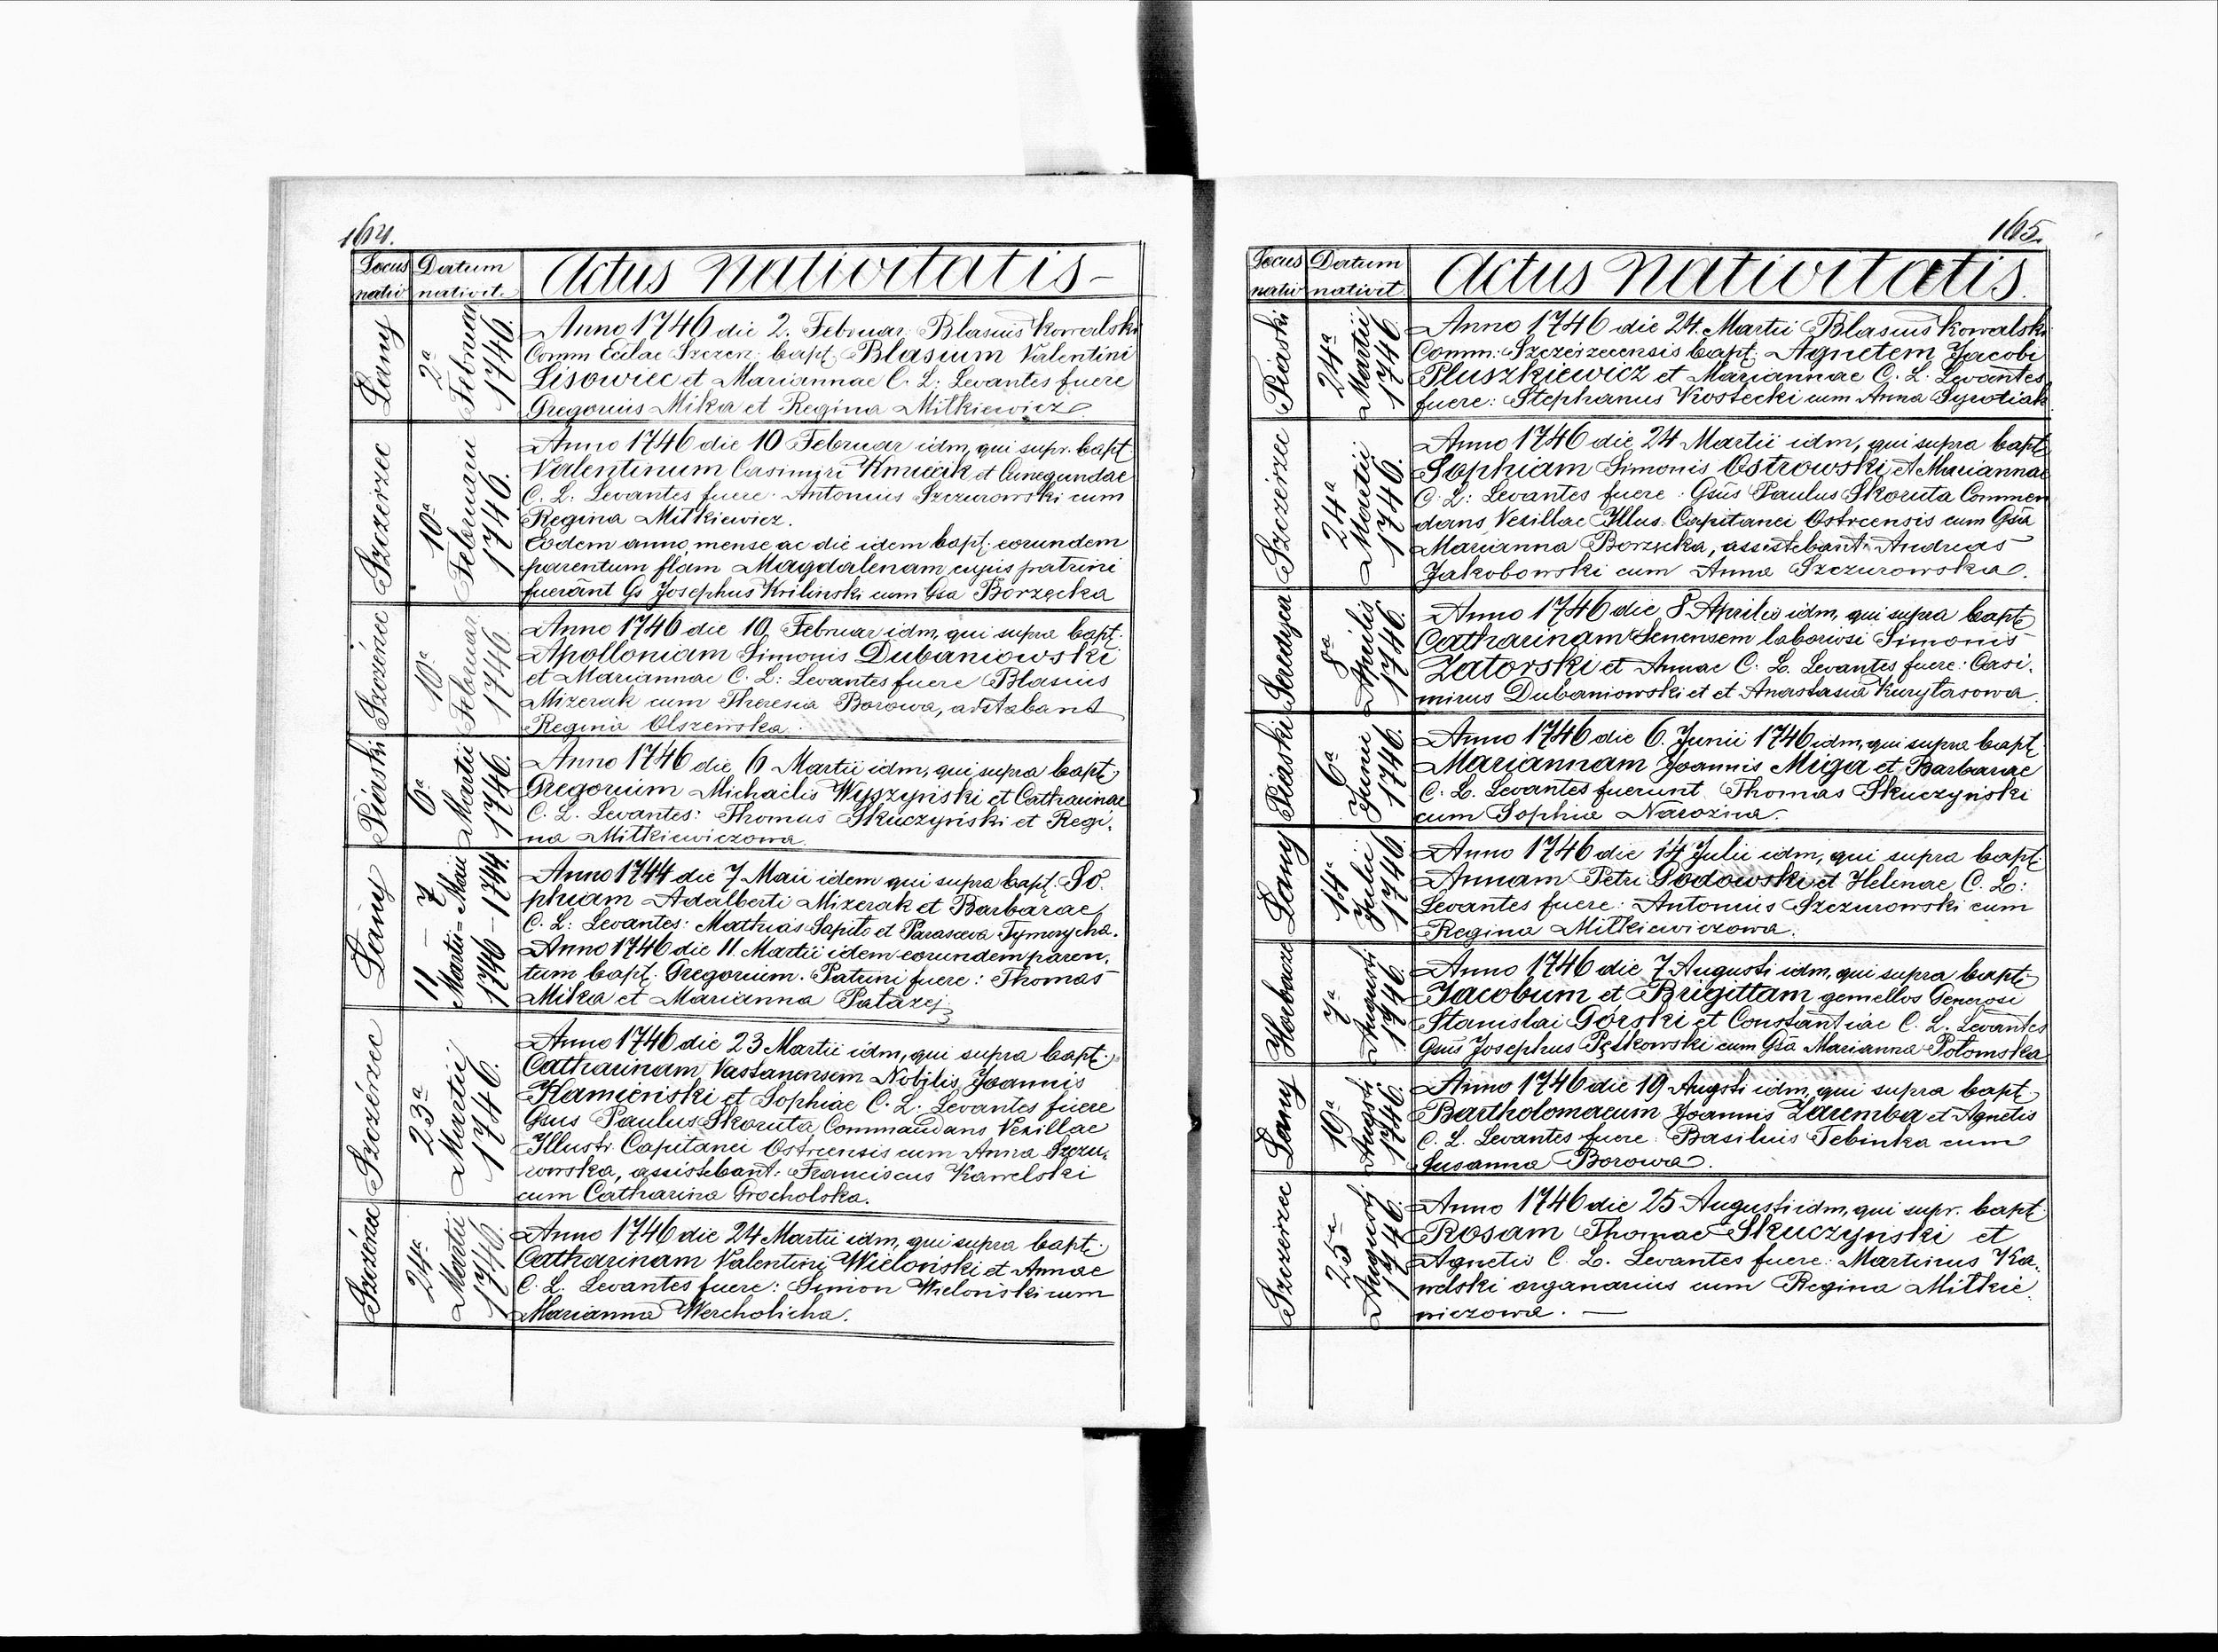 164.
Locus nativ
Datum nativit.
Actus nativitatis
Łany
2a Februar 1746.
Anno 1746 die 2. Februar. Blasius Kowalski
Comm Ecclae Szczen: bapt. Blasium Valentini
Lisowiec et Mariannae C. L: Levantes fuere
Gregorius Mika et Regina Mitkiewicz
Szczerzec
10a Februarii 1746.
Anno 1746 die 10 Februar idm, qui supr. bapt.
Valentinum Casimiri Kmiecik et Cunegundae
C. L. Levantes fuere Antonius Szczurowski cum
Regina Mitkiewicz.
Eodem anno, mense ac die idem bapt. eorundem
parentum flam Magdalenam cujus patrini
fuerant Gs Josephus Krilinski cum Gsa Borzęcka
Szczérzec
10a Februar 1746.
Anno 1746 die 10 Februar idm, qui supra bapt.
Apolloniam Simonis Dubaniowski
et Mariannae C. L: Levantes fuere Blasius
Mizerak cum Theresia Borowa, adstabant
Regina Olszewska.
Piaski
6a Martii 1746.
Anno 1746 die 6 Martii idm, qui supra bapt.
Gregorium Michaelis Wyszyński et Catharinae
C. L. Levantes: Thomas Skuczyński et Regi-
na Mitkiewiczowa.
Łany
11 Martii 1746 — 7 Maii 1744.
Anno 1744 die 7 Maii idem qui supra bapt. So-
phiam Adalberti Mizerak et Barbarae
C. L: Levantes: Mathias Sapito et Parasceva Tymorycha.
Anno 1746 die 11 Martii idem eorundem paren-
tum bapt. Gregorium. Patrini fuere: Thomas
Mika et Marianna Patazej
Szczérzec
23a Martii 1746.
Anno 1746 die 23 Martii idm, qui supra bapt.
Catharinam Vastanensem Nobilis Joannis
Kamieński et Sophiae C. L. Levantes fuere
Gsus Paulus Skoruta Commandans Vexillae
Illustr. Capitanei Ostreensis cum Anna Szczu-
rowska, assistebant: Franciscus Kawelski
cum Catharina Grocholska.
Szczérzec
24a Martii 1746.
Anno 1746 die 24 Martii idm, qui supra bapt.
Catharinam Valentini Wieloński et Annae
C. L. Levantes fuere: Simon Wieloński cum
Marianna Wercholicha.
165.
Locus nativ
Datum nativit
Actus nativitatis.
Piaski
24a Martii 1746
Anno 1746 die 24. Martii Blasius Kowalski
Comm: Szczerzecensis bapt. Agnetem Jacobi
Pluszkiewicz et Mariannae C. L. Levantes
fuere: Stephanus Kostecki cum Anna Syrotiak
Szczerzec
24a Martii 1746.
Anno 1746 die 24 Martii idm, qui supra bapt.
Sophiam Simonis Ostrowski et Mariannae
C. L: Levantes fuere: Gsus Paulus Skoruta Commen
dans Vexillae Illus. Capitanei Ostreensis cum Gsa
Marianna Borzęcka, assistebant Andreas
Jakobowski cum Anna Szczurowska.
Seredyca
8a Aprilis 1746.
Anno 1746 die 8 Aprilis idm, qui supra bapt.
Catharinam Senensem laboriosi Simonis
Zatorski et Annae C. L. Levantes fuere: Casi-
mirus Dubaniowski et et Anastasia Kurytasowa
Piaski
6a Junii 1746.
Anno 1746 die 6. Junii 1746 idm, qui supra bapt.
Mariannam Joannis Miga et Barbarae
C. L. Levantes fuerunt Thomas Skuczyński
cum Sophia Narożna.
Łany
14a Julii 1746
Anno 1746 die 14 Julii idm, qui supra bapt.
Annam Petri Godowski et Helenae C. L:
Levantes fuere: Antonius Szczurowski cum
Regina Mitkiewiczowa.
Horbacze
7a Augusti 1746
Anno 1746 die 7 Augusti idm, qui supra bapt.
Jacobum et Brigittam gemellos Generosi
Stanislai Górski et Constantiae C. L. Levantes
Gsus Josephus Pętkowski cum Gsa Marianna Potomska
Łany
19a Augsti 1746.
Anno 1746 die 19 Augsti idm, qui supra bapt.
Bartholomaeum Joannis Zaremba et Agnetis
C. L. Levantes fuere: Basilius Tebinka cum
Susanna Borowa.
Szczerzec
25a Augusti 1746.
Anno 1746 die 25 Augusti idm, qui supr. bapt.
Rosam Thomae Skuczynski et
Agnetis C. L. Levantes fuere: Martinus Ka-
welski organarius cum Regina Mitkie-
wiczowa. —